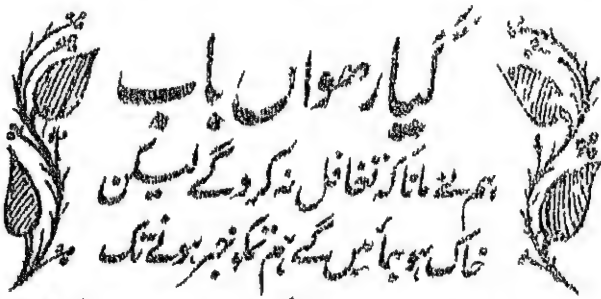 گیارھواں باب
ہم نے مانا کہ تغافل نہ کرو گے لیکن
خاک ہو جائیں گے ہم تمکو خبر ہونے تک